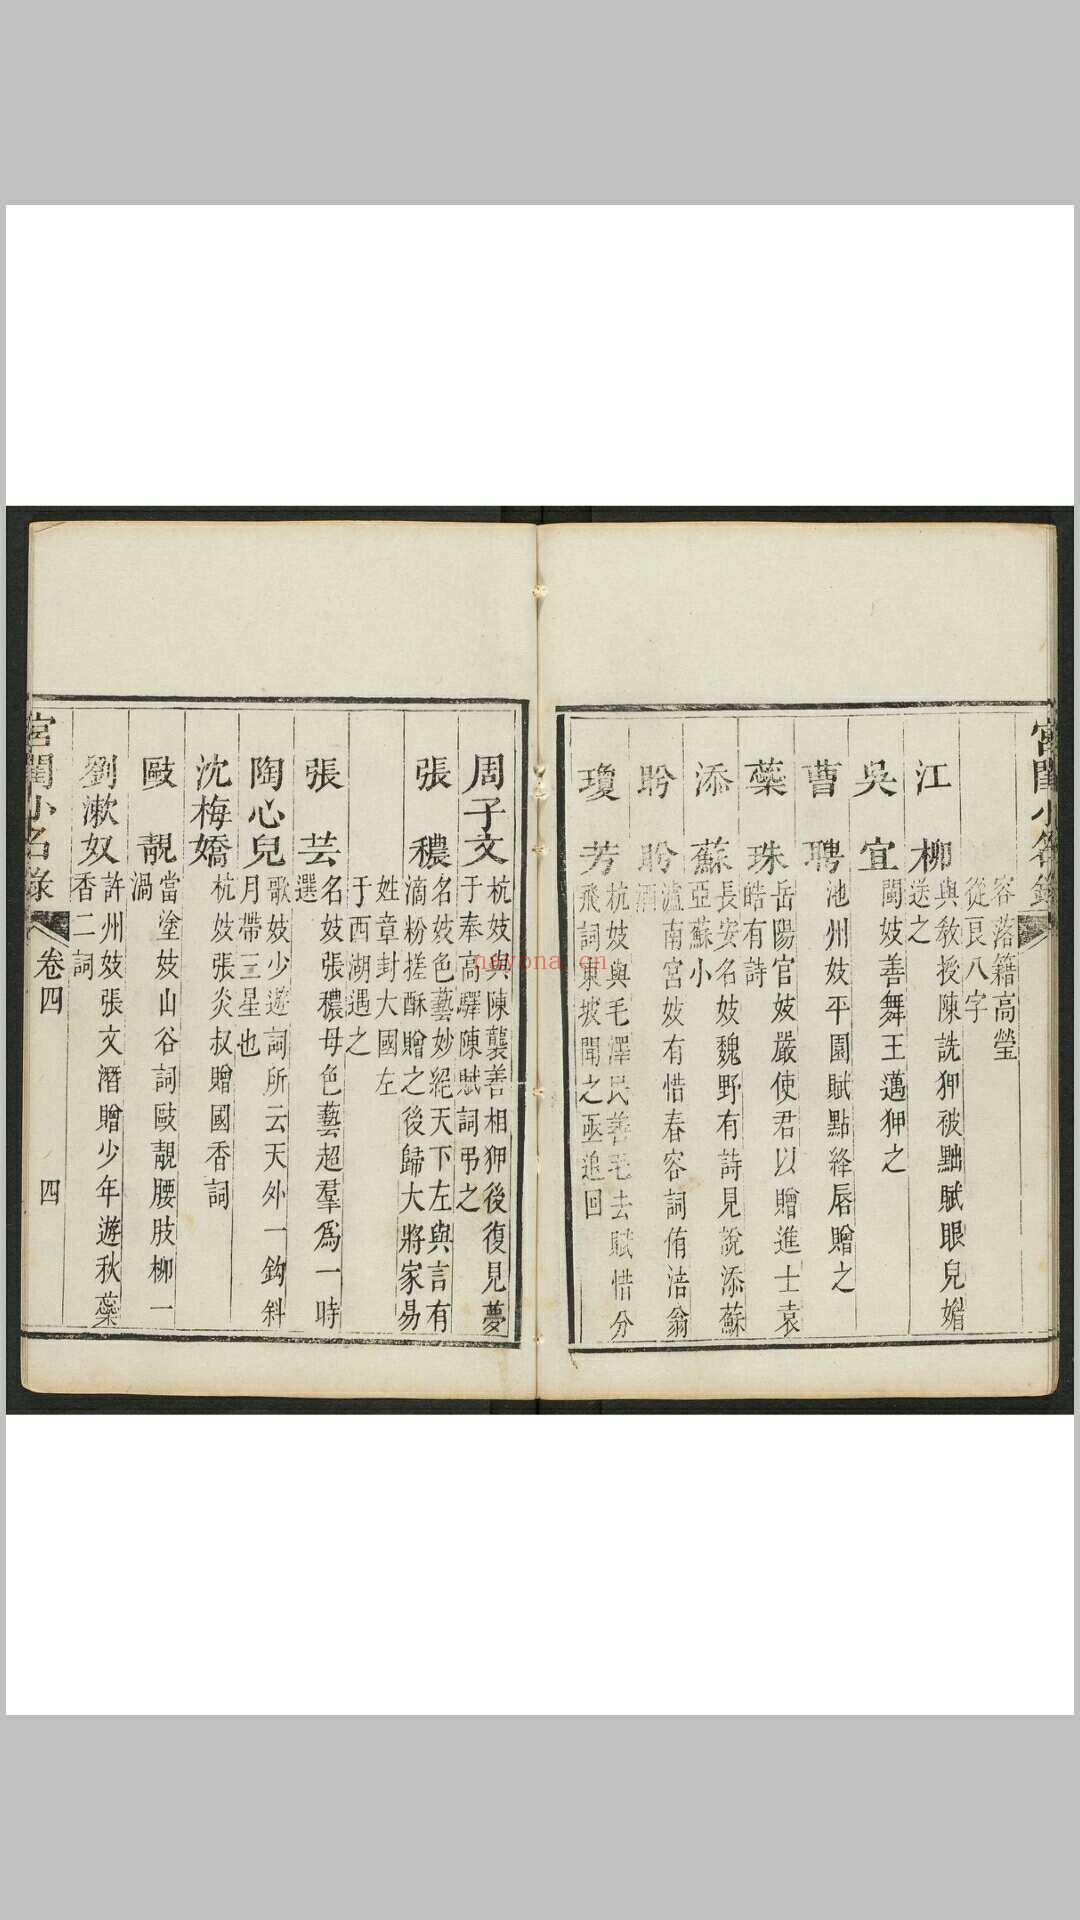 宮閨小名錄
容落籍高瑩
從良八字
江柳
與教授陳詵狎被黜賦眼兒媚
送之
吳宜
閩妓善舞王邁狎之
曹聘
池州妓平園賦點絳唇贈之
蘂珠
岳陽官妓嚴使君以贈進士袁
皓有詩
添蘇
長安名妓魏野有詩見說添蘇
亞蘇小
盼盼
瀘南宮妓有惜春容詞侑涪翁
酒
瓊芳
杭妓與毛澤民善毛去賦惜分
飛詞東坡聞之亟追回
周子文
杭妓與陳襲善相狎後復見夢
于奉高驛陳賦詞弔之
張穠
名妓色藝妙絕天下左與言有
滴粉搓酥贈之後歸大將家易
姓章封大國左
于西湖遇之
張芸
名妓張穠母色藝超羣爲一時
選
陶心兒
歌妓少遊詞所云天外一鈎斜
月帶三星也
沈梅嬌
杭妓張炎叔贈國香詞
毆靚
當塗妓山谷詞毆靚腰肢柳一
渦
劉漱奴
許州妓張文潛贈少年遊秋蘂
香二詞
宮閨小名錄
卷四
四
nayona.cn